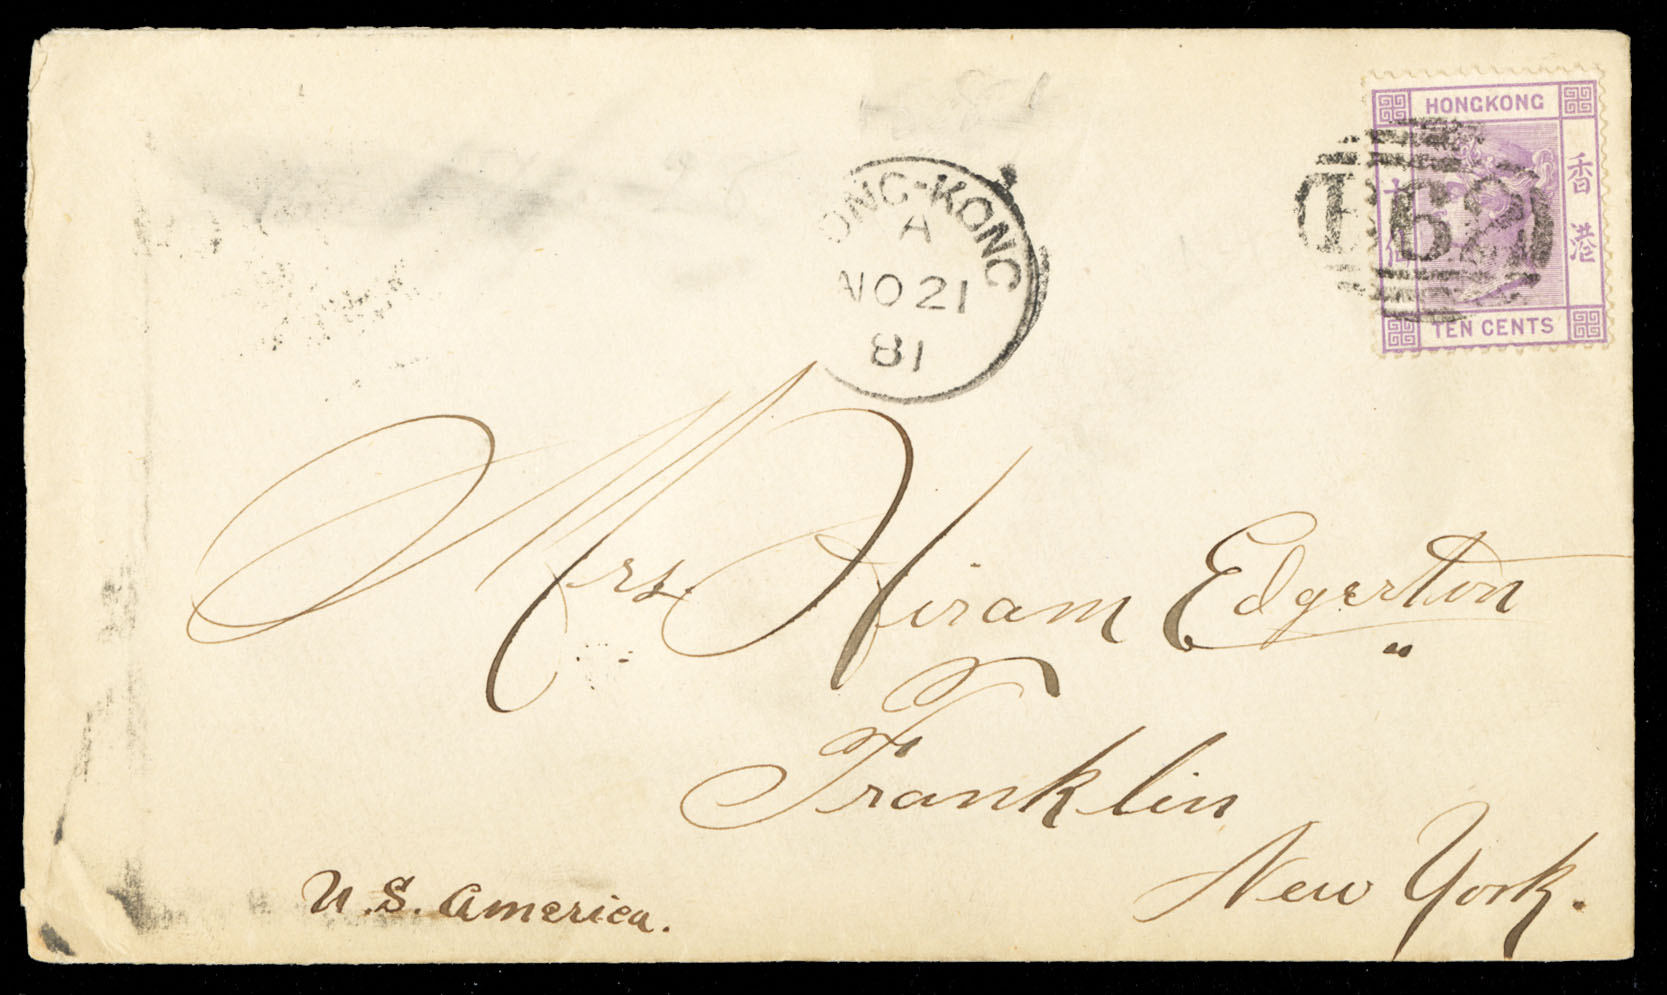 HONGKONG
香港
TEN CENTS
B62
HONG-KONG
A
NO 21
81
Mrs. Hiram Edgerton
Franklin
New York.
U.S. America.